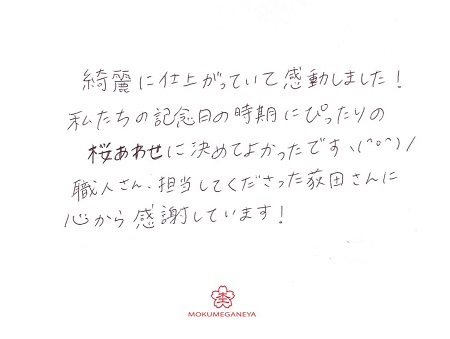 綺麗に仕上がっていて感動しました！
私たちの記念日の時期にぴったりの
桜あわせに決めてよかったです、(^o^)/
職人さん、担当してくださった荻田さんに
心から感謝しています！
MOKUMEGANEYA